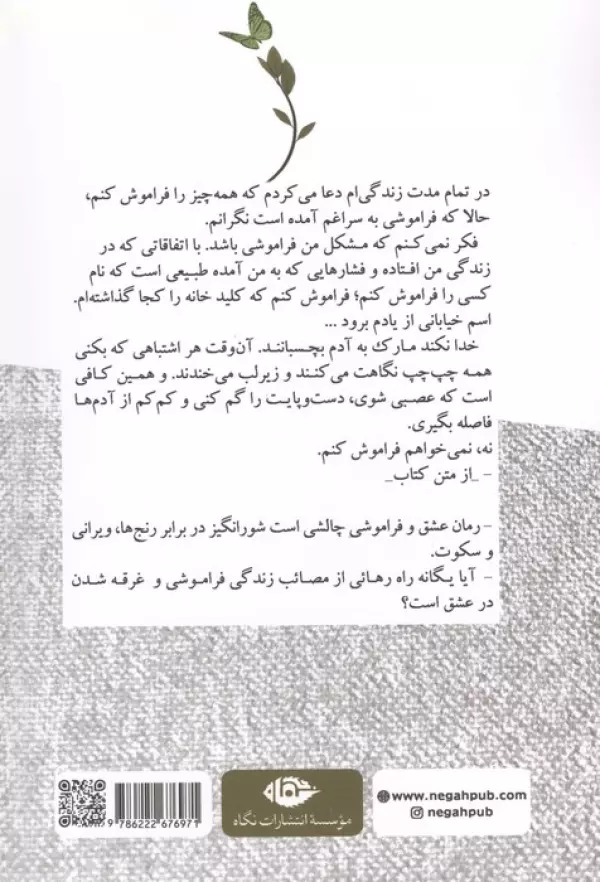 در تمام مدت زندگی‌ام دعا می‌کردم که همه‌چیز را فراموش کنم،
حالا که فراموشی به سراغم آمده است نگرانم.
فکر نمی‌کنم که مشکل من فراموشی باشد. با اتفاقاتی که در
زندگی من افتاده و فشارهایی که به من آمده طبیعی است که نام
کسی را فراموش کنم؛ فراموش کنم که کلید خانه را کجا گذاشته‌ام.
اسم خیابانی از یادم برود ...
خدا نکند مارک به آدم بچسبانند. آن‌وقت هر اشتباهی که بکنی
همه چپ‌چپ نگاهت می‌کنند و زیرلب می‌خندند. و همین کافی
است که عصبی شوی، دست‌وپایت را گم کنی و کم‌کم از آدم‌ها
فاصله بگیری.
نه، نمی‌خواهم فراموش کنم.
- _از متن کتاب_
- رمان عشق و فراموشی چالشی است شورانگیز در برابر رنج‌ها، ویرانی
و سکوت.
- آیا یگانه راه رهائی از مصائب زندگی فراموشی و غرقه شدن
در عشق است؟
9 786222 676971
نگاه
مؤسسهٔ انتشارات نگاه
www.negahpub.com
negahpub